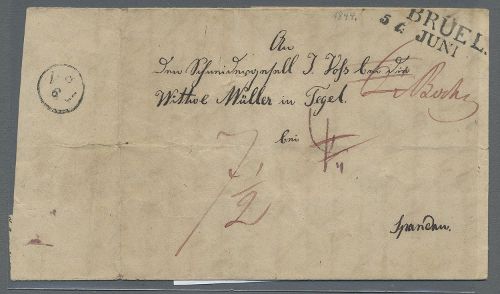 1844.
BRUEL.
5 6 JUNI
An
den Schneidergesell J. Voß bei der
Witwe Müller in Tegel.
bei
7 1/2
Spandau.